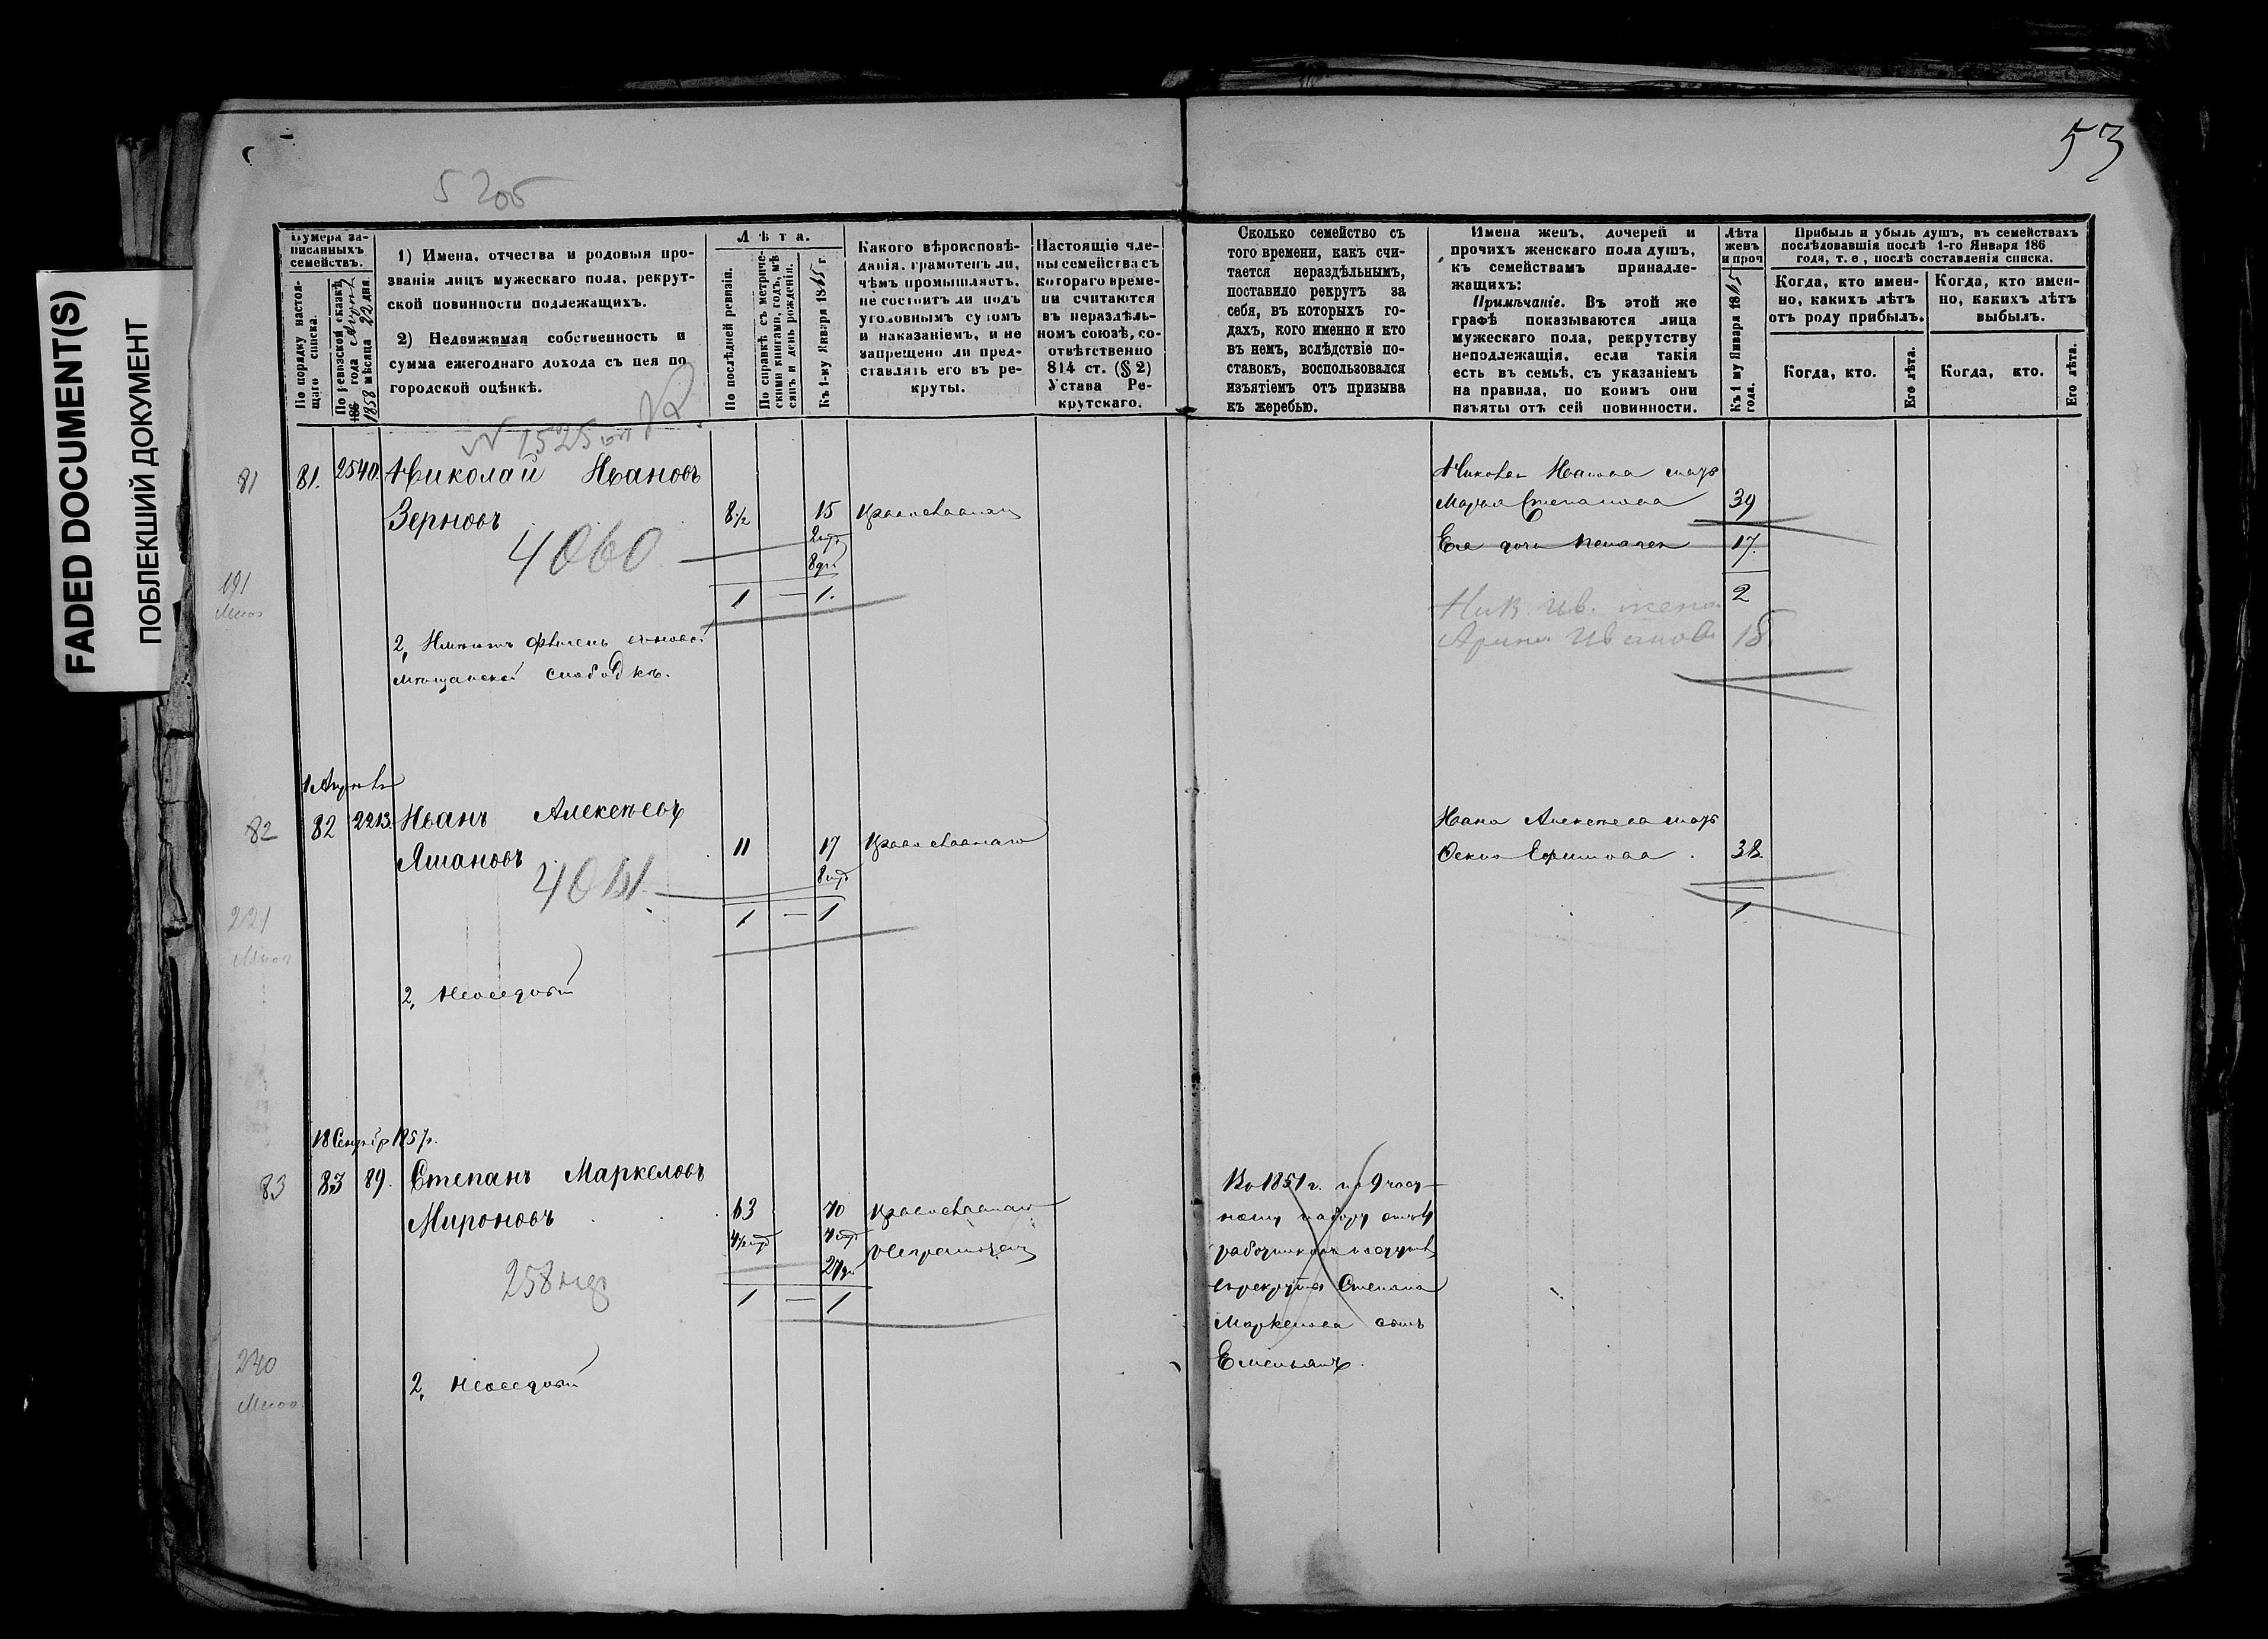 FADED DOCUMENT(S)
ПОБЛЕКШИЙ ДОКУМЕНТ
53
5205
Нумера за-
писанныхъ
семействъ.
По порядку настоя-
щаго списка.
По ревизской сказкѣ
186 года
1858 мѣсяца 22 дня.
1) Имена, отчества и родовыя про-
званія лицъ мужескаго пола, рекрут-
ской повинности подлежащихъ.
2) Недвижимая собственность и
сумма ежегоднаго дохода съ нея по
городской оцѣнкѣ.
Лѣта.
По послѣдней ревизіи.
По справкѣ съ метриче-
скими книгами, годъ, мѣ-
сяцъ и день рожденія.
Къ 1-му Января 1865 г.
Какого вѣроисповѣ-
данія, грамотенъ ли,
чѣмъ промышляетъ,
не состоитъ ли подъ
уголовнымъ судомъ
и наказаніемъ, и не
запрещено ли пред-
ставлять его въ ре-
круты.
Настоящіе чле-
ны семейства съ
котораго време-
ни считаются
въ нераздѣль-
номъ союзѣ, со-
отвѣтственно
814 ст. (§ 2)
Устава Ре-
крутскаго.
Сколько семейство съ
того времени, какъ счи-
тается нераздѣльнымъ,
поставило рекрутъ за
себя, въ которыхъ го-
дахъ, кого именно и кто
въ немъ, вслѣдствіе по-
ставокъ, воспользовался
изъятіемъ отъ призыва
къ жеребью.
Имена женъ, дочерей и
прочихъ женскаго пола душъ,
къ семействамъ принадле-
жащихъ:
Примѣчаніе. Въ этой же
графѣ показываются лица
мужескаго пола, рекрутству
неподлежащія, если такія
есть въ семьѣ, съ указаніемъ
на правила, по коимъ они
изъяты отъ сей повинности.
Лѣта
женъ
и проч
Къ 1 му Января 1865
года.
Прибыль и убыль душъ, въ семействахъ
послѣдовавшія послѣ 1-го Января 186
года, т. е, послѣ составленія списка.
Когда, кто имен-
но, какихъ лѣтъ
отъ роду прибылъ.
Когда, кто.
Его лѣта.
Когда, кто имен-
но, какихъ лѣтъ
выбылъ.
Когда, кто.
Его лѣта.
N 1525
81 81. 2540. Николай Ивановъ
Зерновъ 8½ 15
4060
1 — 1.
191
2,
мѣщанской слободкѣ.
Марья Степанова 39
Ея дочь 17.
2
Ник. Ив. жена
Арина Иванова 18.
82 82 2213. Иванъ Алексѣевъ
11 17 Православнаго
1 — 1
221
2, Неоседлый
Ивана Алексѣева мать
Ефимова 38.
1
18 1857.
83 83 89. Степанъ Маркеловъ
Мироновъ 63 70 Православнаго
258
1 — 1
240
2, Неоседлый
Во 1851 г. по 9 част-
ному набору
Степана
Маркелова сынъ
Емельянъ.